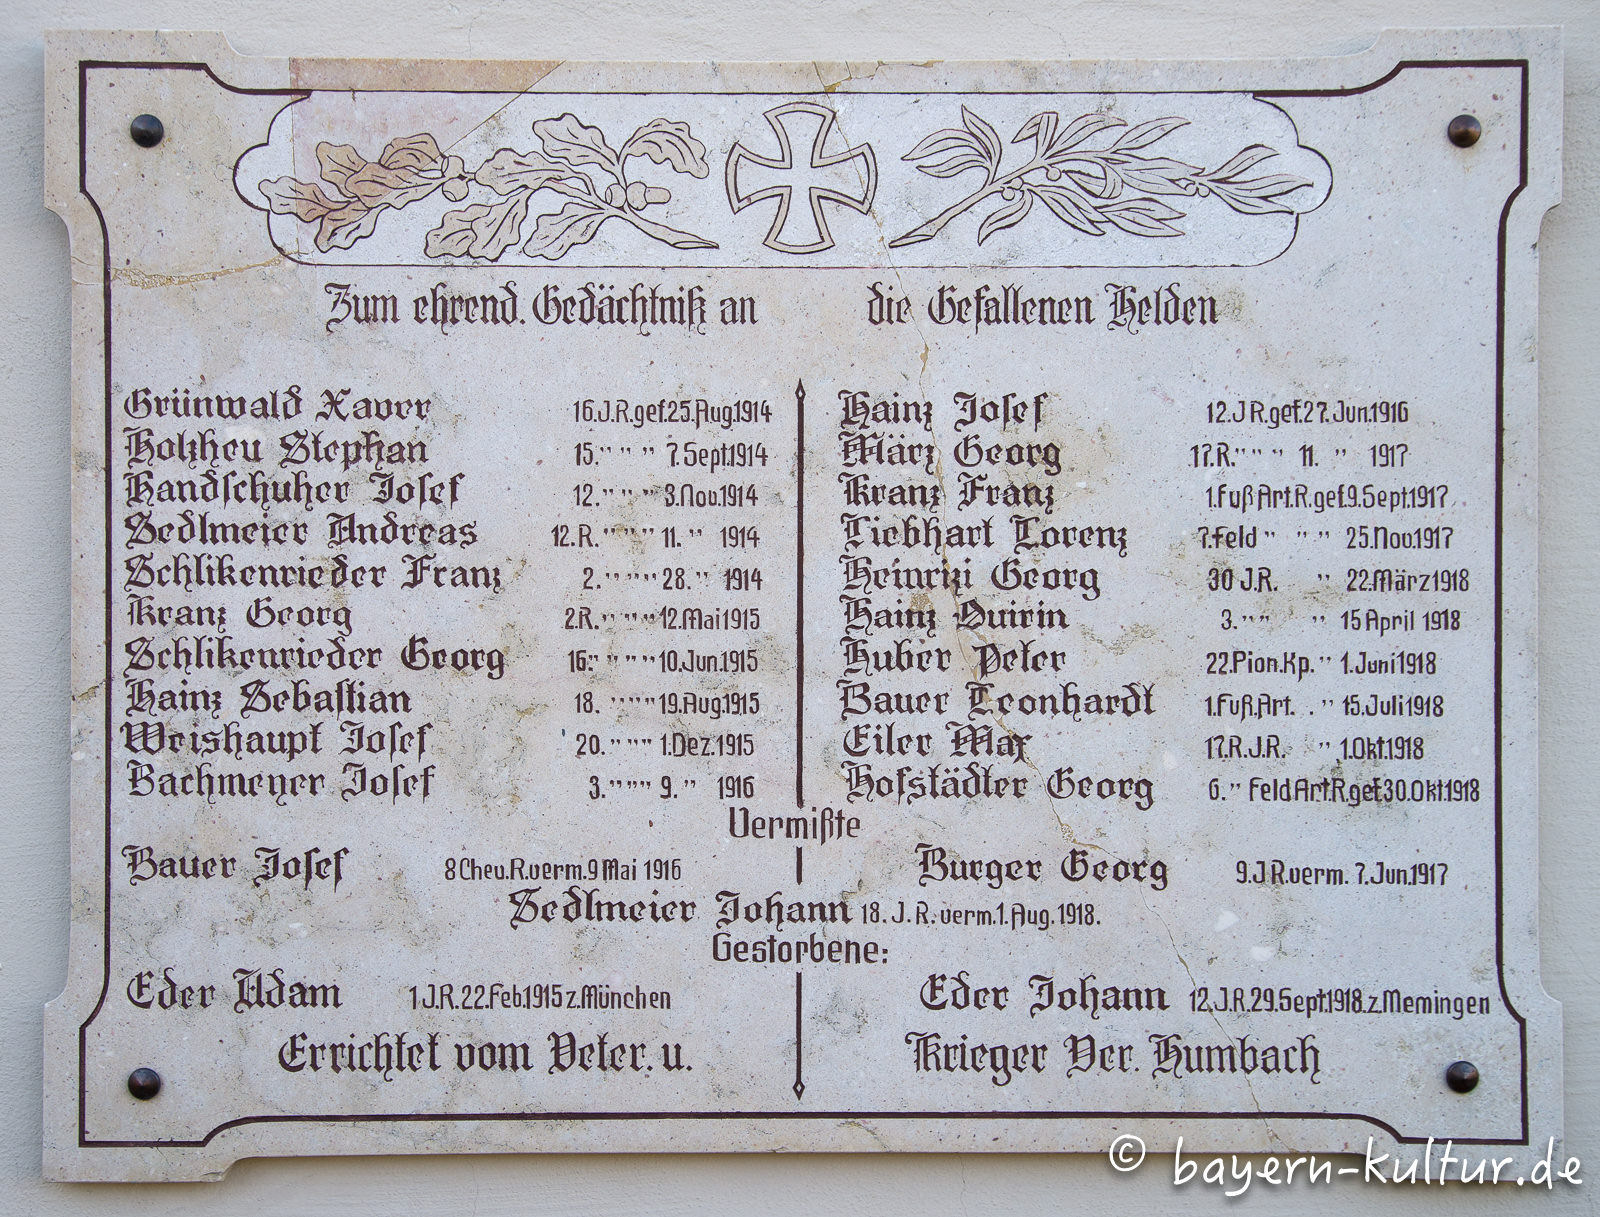 Zum ehrend. Gedächtniß an die Gefallenen Helden
Grünwald Xaver 16.J.R.gef.25.Aug.1914
Holzheu Stephan 15." " " 7.Sept.1914
Handschuher Josef 12." " " 3.Nov.1914
Sedlmeier Andreas 12.R." " " 11. " 1914
Schlikenrieder Franz 2." " " 28. " 1914
Kranz Georg 2.R." " " 12.Mai 1915
Schlikenrieder Georg 16." " " " 10.Jun.1915
Hainz Sebastian 18. " " " 19.Aug.1915
Weishaupt Josef 20." " " 1.Dez.1915
Bachmeyer Josef 3." " " 9. " 1916
Hainz Josef 12.J R.gef.27.Jun.1916
März Georg 17.R." " " 11. " 1917
Kranz Franz 1.Fuß Art.R.gef.9.Sept.1917
Liebhart Lorenz 7.Feld " " " 25.Nov.1917
Heinrizi Georg 30 J.R. " 22.März 1918
Hainz Quirin 3." " " 15 April 1918
Huber Peter 22.Pion.Kp. " 1.Juni 1918
Bauer Leonhardt 1.Fuß.Art. . " 15.Juli 1918
Eiler Max 17.R.J.R. " 1.Okt.1918
Hofstädter Georg 6. " Feld Art.R.gef.30.Okt.1918
Vermißte
Bauer Josef 8 Chev.R.verm.9 Mai 1916
Burger Georg 9.J R.verm. 7.Jun.1917
Sedlmeier Johann 18. J. R. verm.1.Aug.1918.
Gestorbene:
Eder Adam 1 J.R.22.Feb.1915 z.München
Eder Johann 12.J.R.29.Sept.1918.z.Memingen
Errichtet vom Veter. u. Krieger Ver. Humbach
© bayern-kultur.de